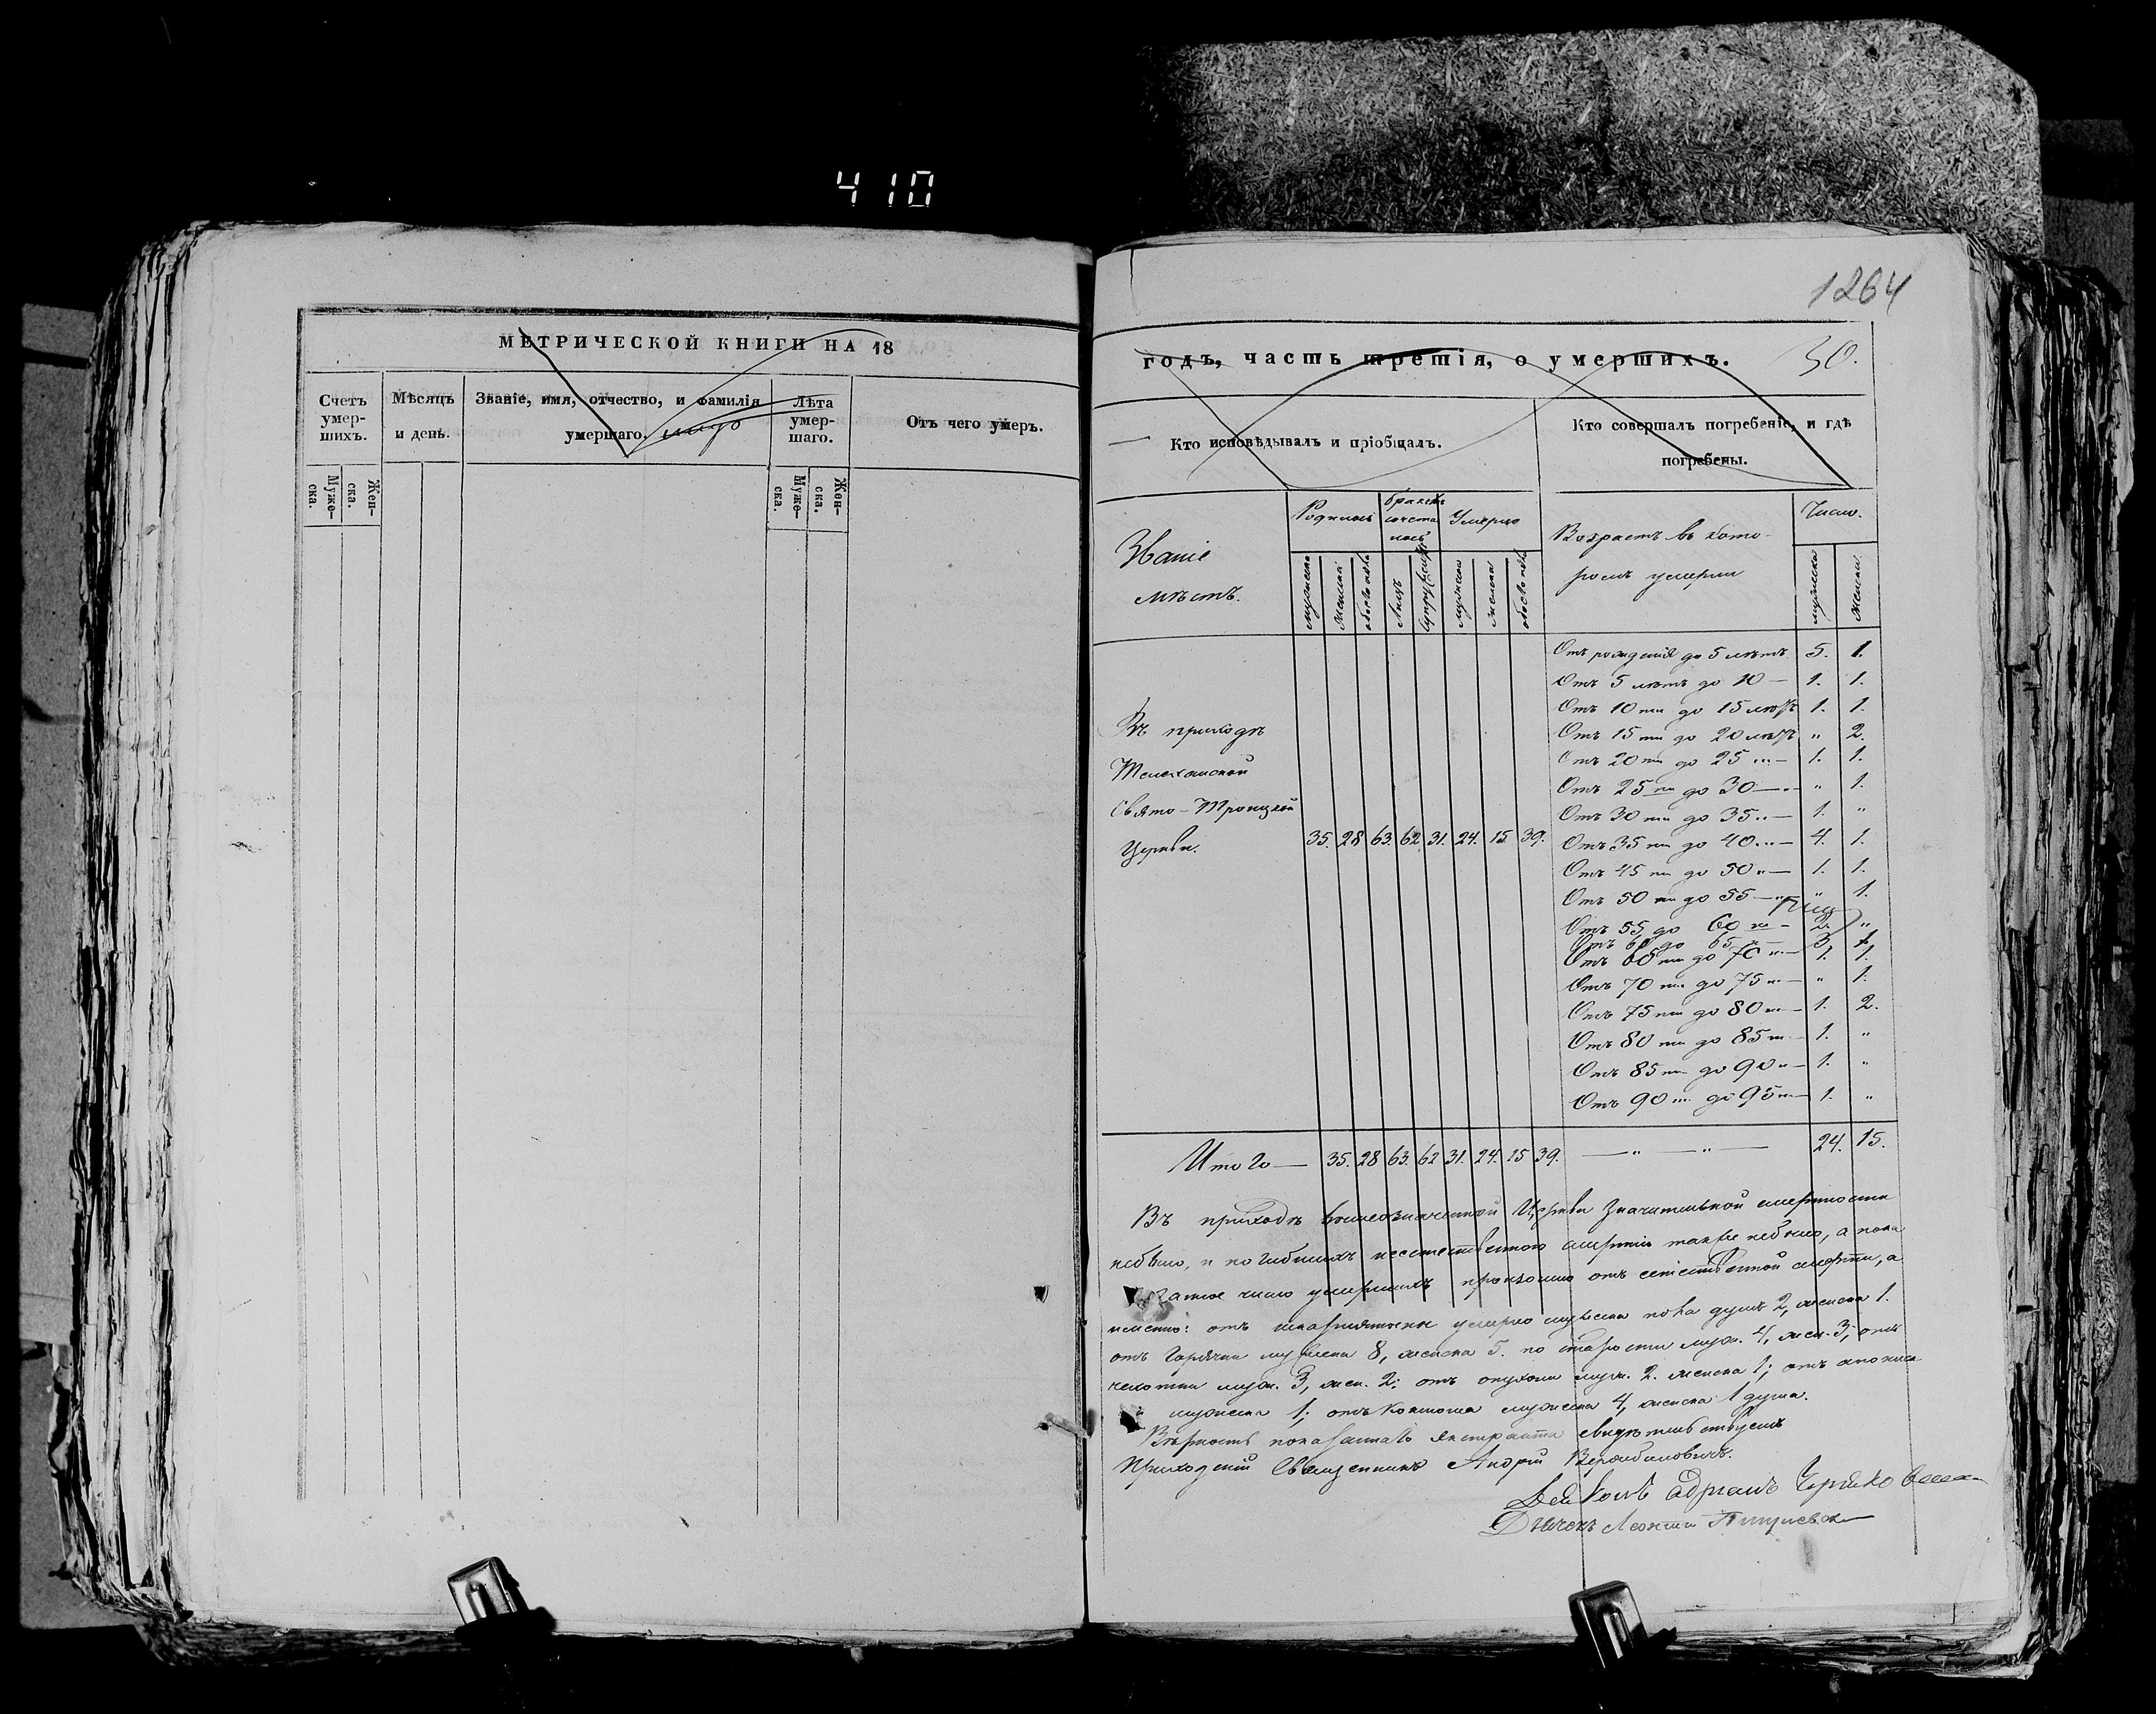 410
МЕТРИЧЕСКОЙ КНИГИ НА 18
Счетъ умер-шихъ.
Мѣсяцъ и день.
Званіе, имя, отчество, и фамилія
умершаго.
Лѣта умер-шаго.
Отъ чего умеръ.
Муже-ска.
Жен-ска.
Муже-ска.
Жен-ска.
1264
годъ, часть третія, о умершихъ.
30.
Кто исповѣдывалъ и пріобщалъ.
Кто совершалъ погребеніе, и гдѣ
погребены.
Званіе
мѣстъ.
Родилось
бракомъ сочеталось
Умерло
Возрастъ въ кото-
ромъ умерли
Число.
мужеска
женска
обоего пола
Лицъ
Супружествъ
мужеска
женска
обоего пола
мужеска
женска
Отъ рожденія до 5 лѣтъ 5. 1.
Отъ 5 лѣтъ до 10 — 1. 1.
Отъ 10 ти до 15 лѣтъ 1. 1.
Въ приходѣ
Отъ 15 ти до 20 лѣтъ " 2.
Отъ 20 ти до 25 " — 1. 1.
Отъ 25 ти до 30 — " 1.
Свято-Троицкой
Отъ 30 ти до 35 " — 1. "
Церкви. 35. 28 63. 62. 31. 24. 15 39.
Отъ 35 ти до 40 " — 4. 1.
Отъ 45 ти до 50 " — 1. 1.
Отъ 50 ти до 55 — " 1.
Отъ 55 до 60 " — 2. "
Отъ 60 до 65 " — 3. 1.
Отъ 65 ти до 70 " — 1. 1.
Отъ 70 ти до 75 " — " 1.
Отъ 75 ти до 80 " — 1. 2.
Отъ 80 ти до 85 " — 1. "
Отъ 85 ти до 90 " — 1. "
Отъ 90 ти до 95 " — 1. "
Итого — 35. 28 63. 62 31. 24. 15 39. — " — " — 24. 15.
Въ приходѣ вышеозначенной Церкви значительной смертности
небыло, и погибшихъ неестественною смертію также небыло, а пока
занное число умершихъ произошло отъ естественной смерти, а
именно: отъ умерло мужеска пола душъ 2, женска 1.
отъ горячки мужеска 8, женска 5. по старости муж. 4, жен. 3, отъ
чахотки муж. 3, жен. 2; отъ опухоли муж. 2. женска 1; отъ
мужеска 1; отъ коклюша мужеска 4, женска 1 душа.
Вѣрность показаннаго экстракта свидѣтельствуемъ
Приходскій Священникъ Андрей
Адріанъ
Дьячекъ Леонтій